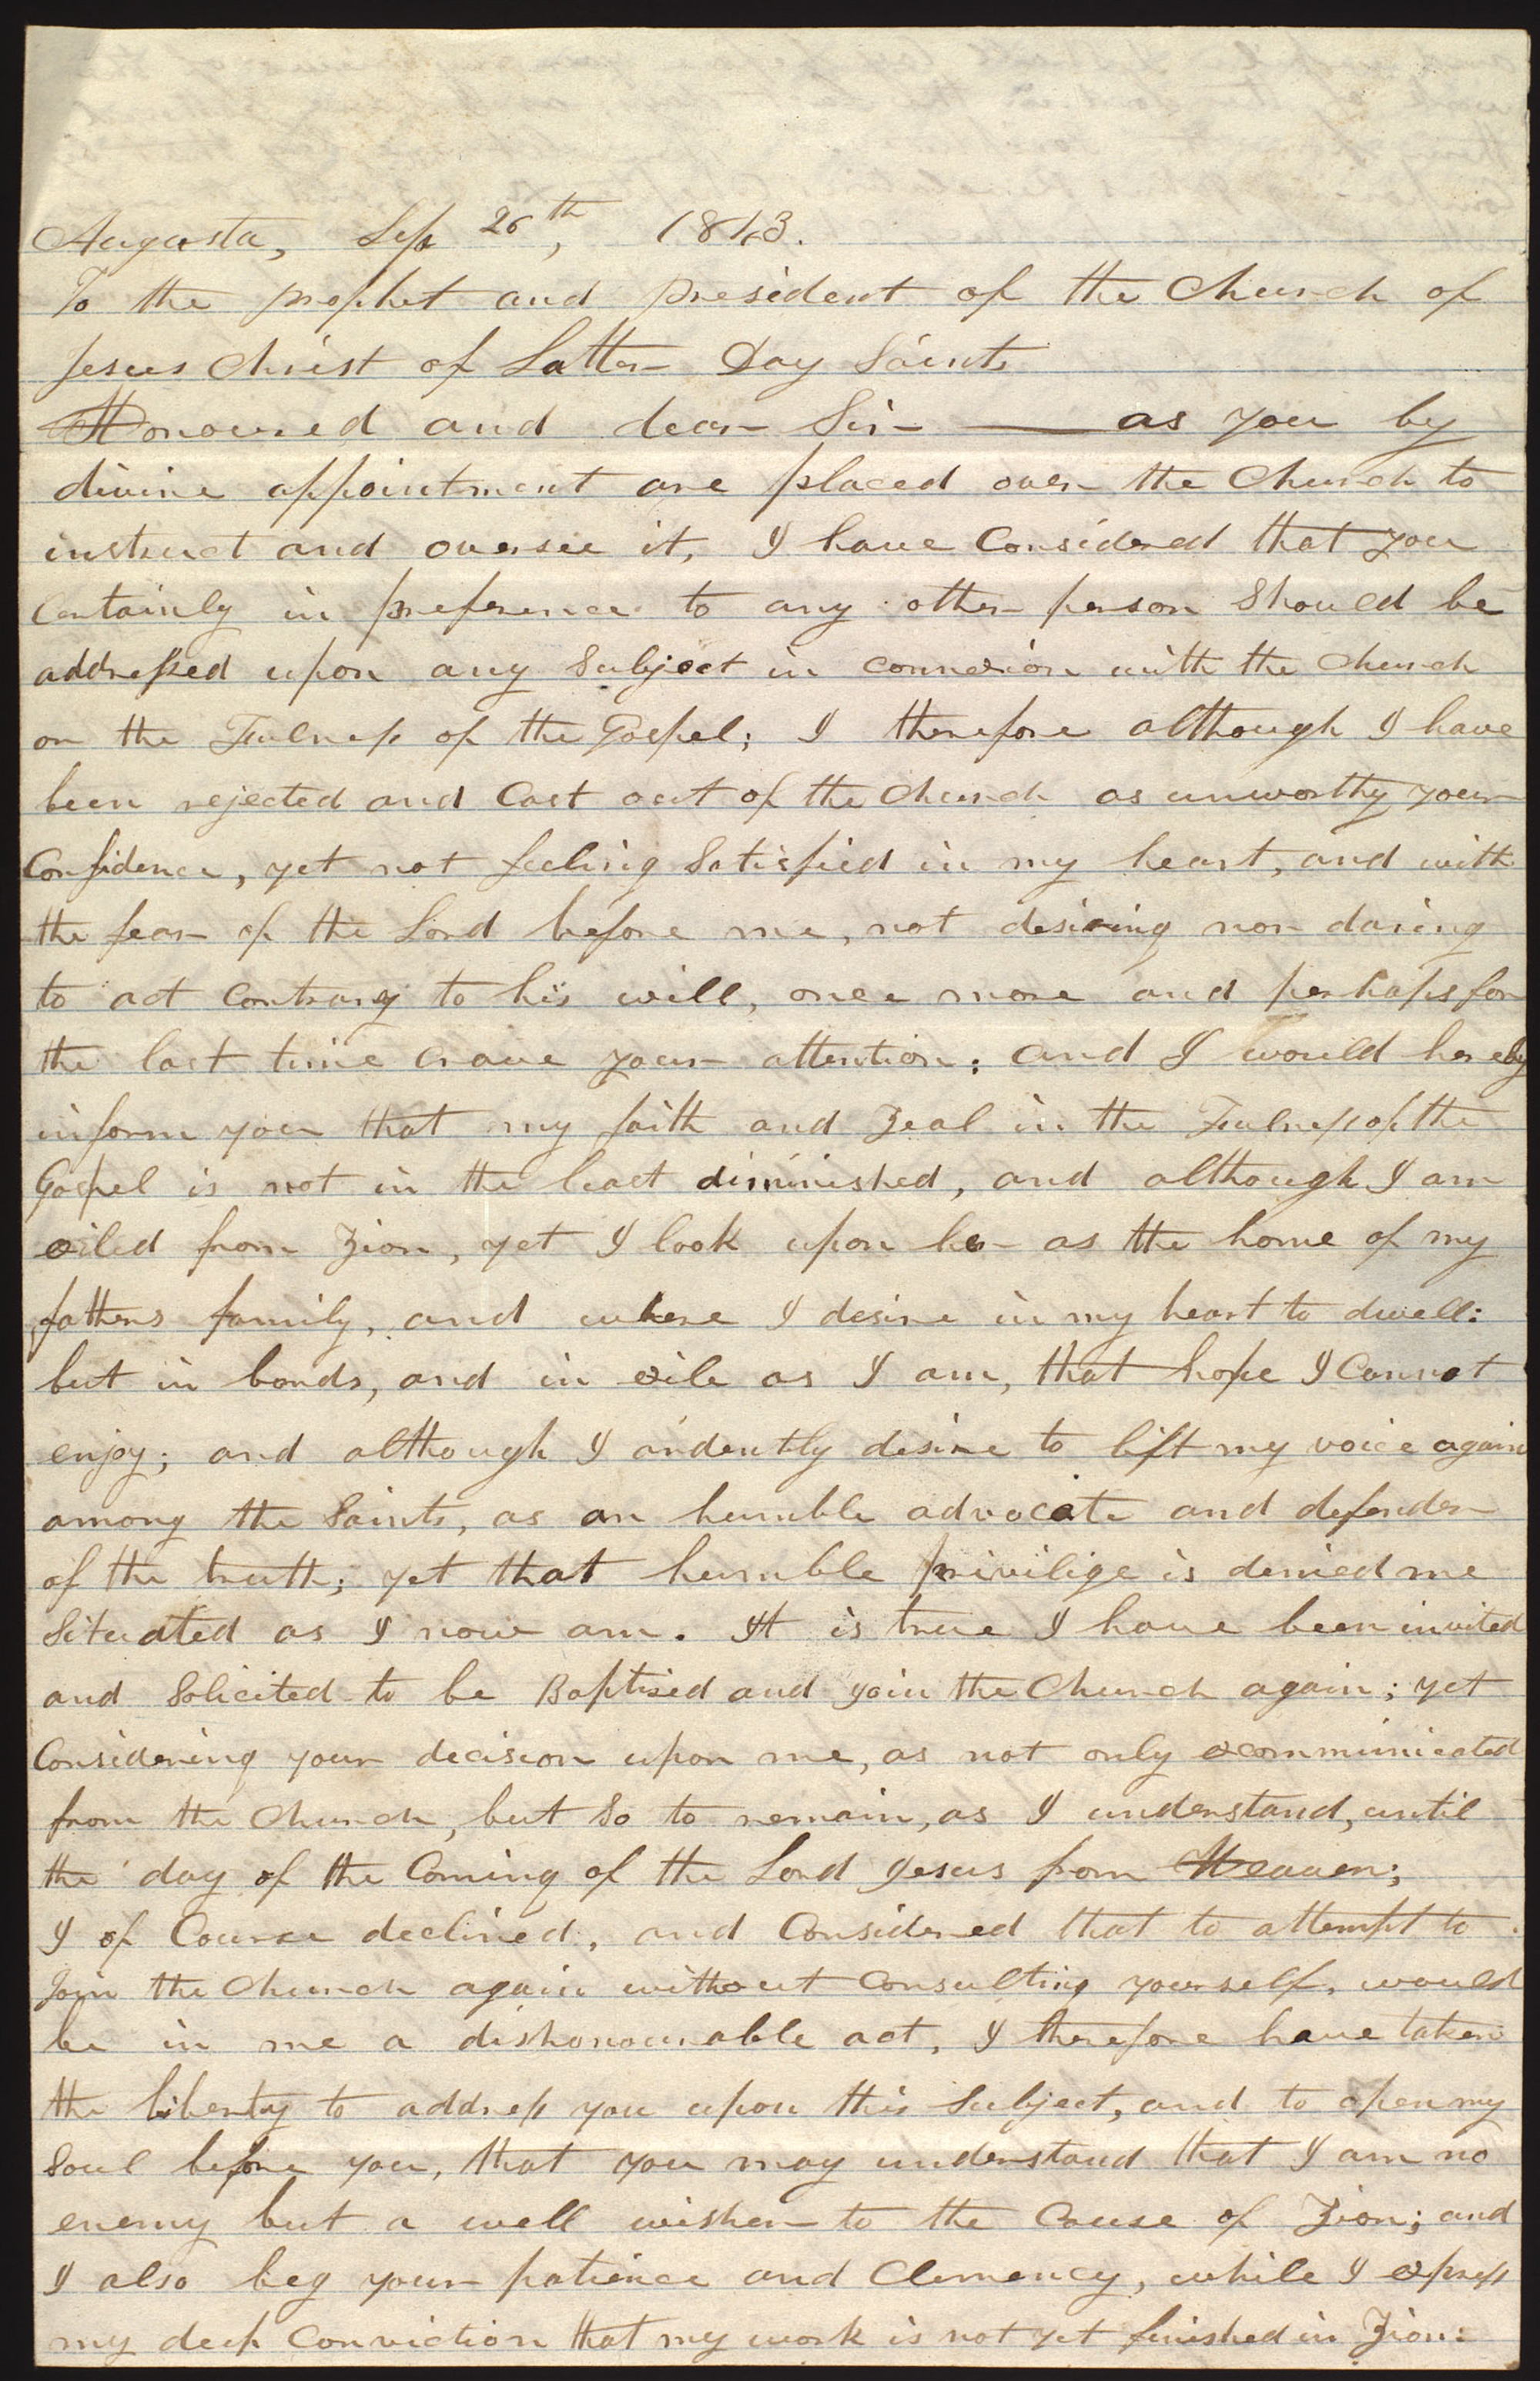 Augusta, Sep 26th, 1843.
To the prophet and president of the Church of
Jesus Christ of Latter Day Saints
Honoured and dear Sir — as you by
divine appointment are placed over the Church to
instruct and oversee it, I have Considered that you
Certainly in preference to any other person Should be
addressed upon any Subject in connexion with the Church
or the Fulness of the Gospel; I therefore although I have
been rejected and Cast out of the Church as unworthy your
Confidence, yet not feeling Satisfied in my heart, and with
the fear of the Lord before me, not desiring nor daring
to act Contrary to his will, once more and perhaps for
the last time crave your attention; and I would hereby
inform you that my faith and Zeal in the Fulness of the
Gospel is not in the least diminished, and although I am
exiled from Zion, yet I look upon her as the home of my
fathers family, and where I desire in my heart to dwell:
but in bonds, and in exile as I am, that hope I Cannot
enjoy; and although I ardently desire to lift my voice again
among the Saints, as an humble advocate and defender
of the truth; yet that humble privilige is denied me
Situated as I now am. It is true I have been invited
and Solicited to be Baptised and join the Church again; yet
Considering your decision upon me, as not only excommunicated
from the Church, but So to remain, as I understand, until
the day of the Coming of the Lord Jesus from Heaven;
I of Course declined, and Considered that to attempt to
Join the Church again without Consulting yourself, would
be in me a dishonourable act, I therefore have taken
the liberty to address you upon this Subject, and to open my
Soul before you, that you may understand that I am no
enemy but a well wisher to the Cause of Zion; and
I also beg your patience and Clemency, while I express
my deep Conviction that my work is not yet finished in Zion: